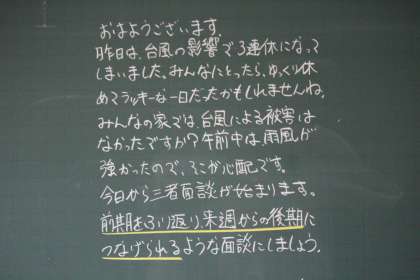 おはようございます。
昨日は、台風の影響で3連休になって
しまいました。みんなにとったら、ゆっくり休
めてラッキーな一日だったかもしれませんね。
みんなの家では、台風による被害は
なかったですか?午前中は、雨風が
強かったので、そこが心配です。
今日から三者面談が始まります。
前期をふり返り、来週からの後期に
つなげられるような面談にしましょう。